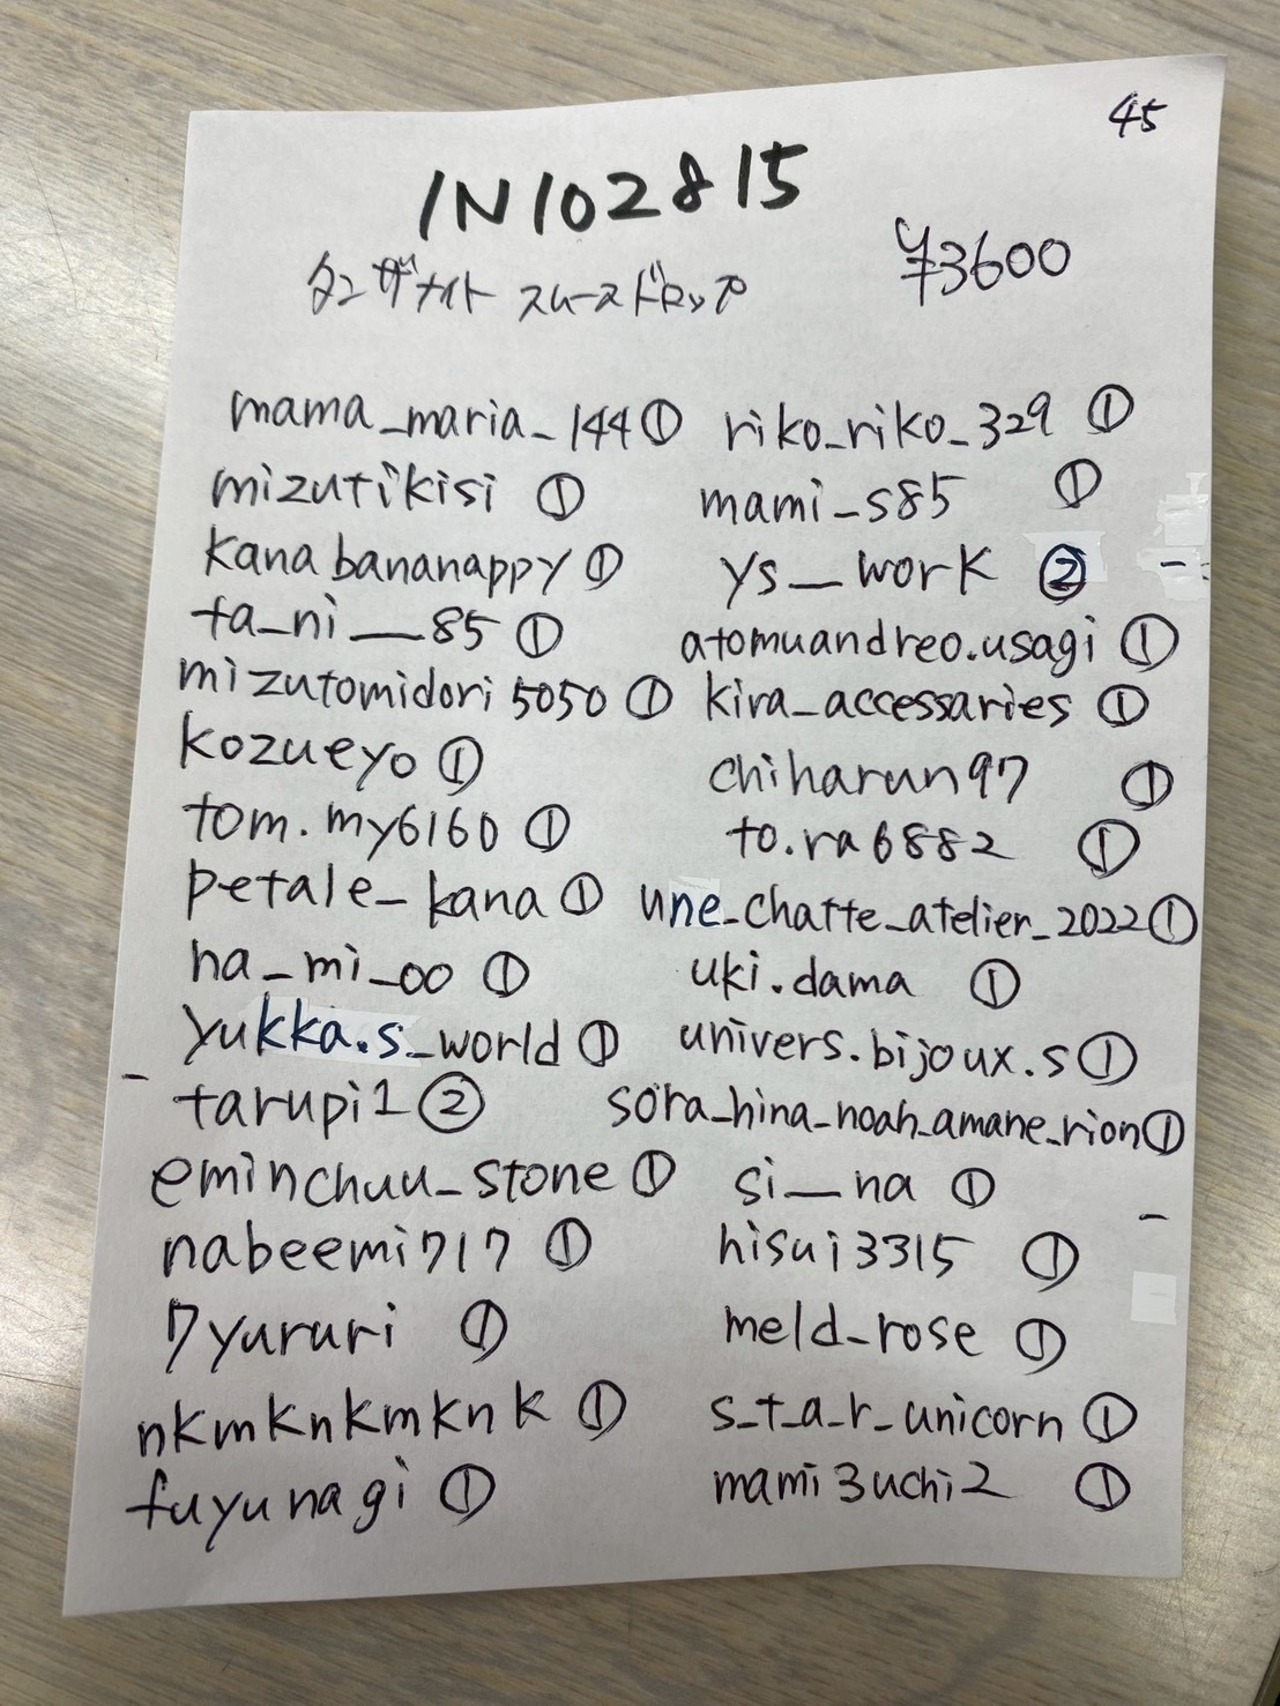 45
IN102815
¥3600
タンザナイト スムースドロップ
mama_maria_144①
mizutikisi ①
kanabananappy①
ta_ni__85①
mizutomidori5050①
kozueyo①
tom.my6160①
petale_kana①
ha_mi_oo①
yukka.s_world①
tarupi1②
eminchuu_stone①
nabeemi717①
7yururi ①
nkmknkmknk①
fuyunagi①
riko_riko_329 ①
mami_s85 ①
ys__work ②
atomuandreo.usagi①
kira_accessaries①
chiharun97 ①
to.ra6882 ①
une_chatte_atelier_2022①
uki.dama ①
univers.bijoux.s①
sora_hina_noah_amane_rion①
si__na ①
hisui3315 ①
meld_rose ①
s_t_a_r_unicorn①
mami3uchi2 ①